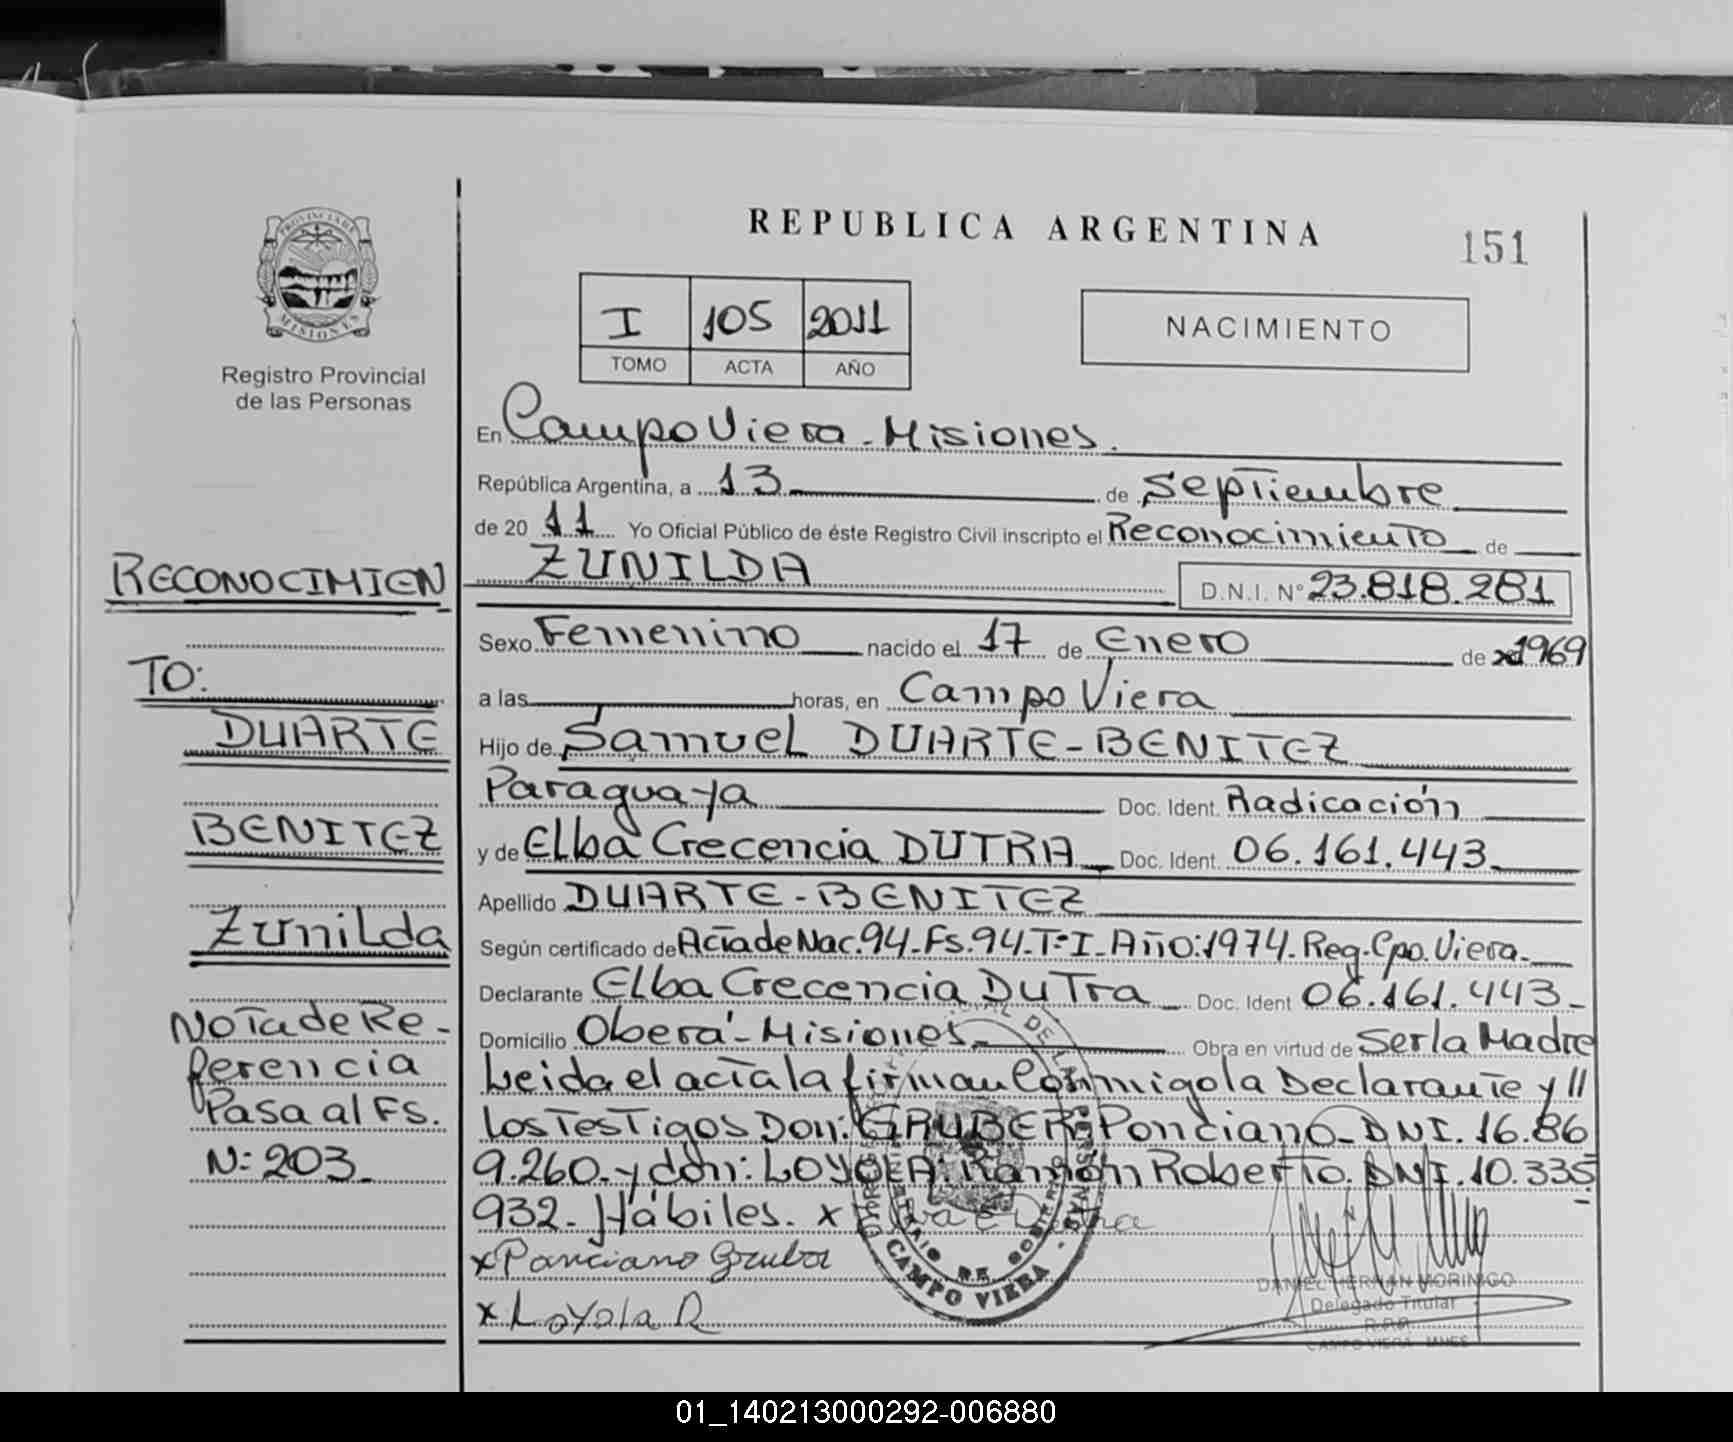 REPUBLICA ARGENTINA
151
PROVINCIA DE
MISIONES
Registro Provincial
de las Personas
I 105 2011
TOMO ACTA AÑO
NACIMIENTO
En Campo Viera - Misiones.
República Argentina, a 13 de Septiembre
de 20 11 Yo Oficial Público de éste Registro Civil inscripto el Reconocimiento de
ZUNILDA D.N.I. N° 23.818.281
Sexo Femenino nacido el 17 de Enero de 1969
a las horas, en Campo Viera
Hijo de Samuel DUARTE-BENITEZ
Paraguaya Doc. Ident. Radicación
y de Elba Crecencia DUTRA Doc. Ident. 06.161.443
Apellido DUARTE-BENITEZ
Según certificado de Acta de Nac. 94-Fs. 94-T:I-Año:1974. Reg. Cpo. Viera-
Declarante Elba Crecencia DuTra Doc. Ident 06.161.443-
Domicilio Oberá - Misiones Obra en virtud de Ser la Madre
Leida el acta la firman Conmigo la Declarante y //
los Testigos Don: GRUBER: Ponciano- DNI. 16.86
9.260- y don: LOYOLA: Ramón Roberto. DNI. 10.335
932- Hábiles. x
x Ponciano Gruber
x Loyola R
RECONOCIMIEN
TO:
DUARTE
BENITEZ
Zunilda
Nota de Re-
ferencia
Pasa al Fs.
N: 203
CAMPO VIERA
DANIEL HERNAN MORINIGO
Delegado Titular
R.P.P.
CAMPO VIERA - MNES
01_140213000292-006880